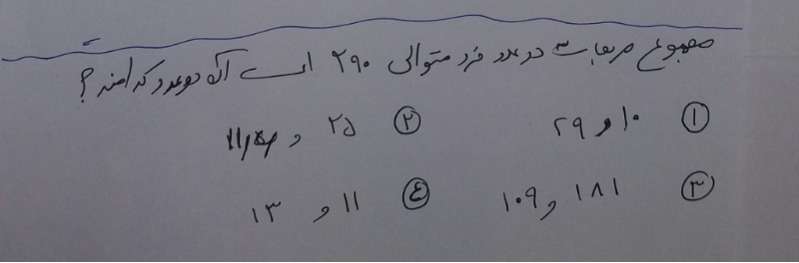 مجموع مربعات دو عدد فرد متوالی ۲۹۰ است آن دو عدد کدامند؟
① ۱۰ و ۲۹ ② ۲۵ و
③ ۱۸۱ و ۱۰۹ ④ ۱۱ و ۱۳